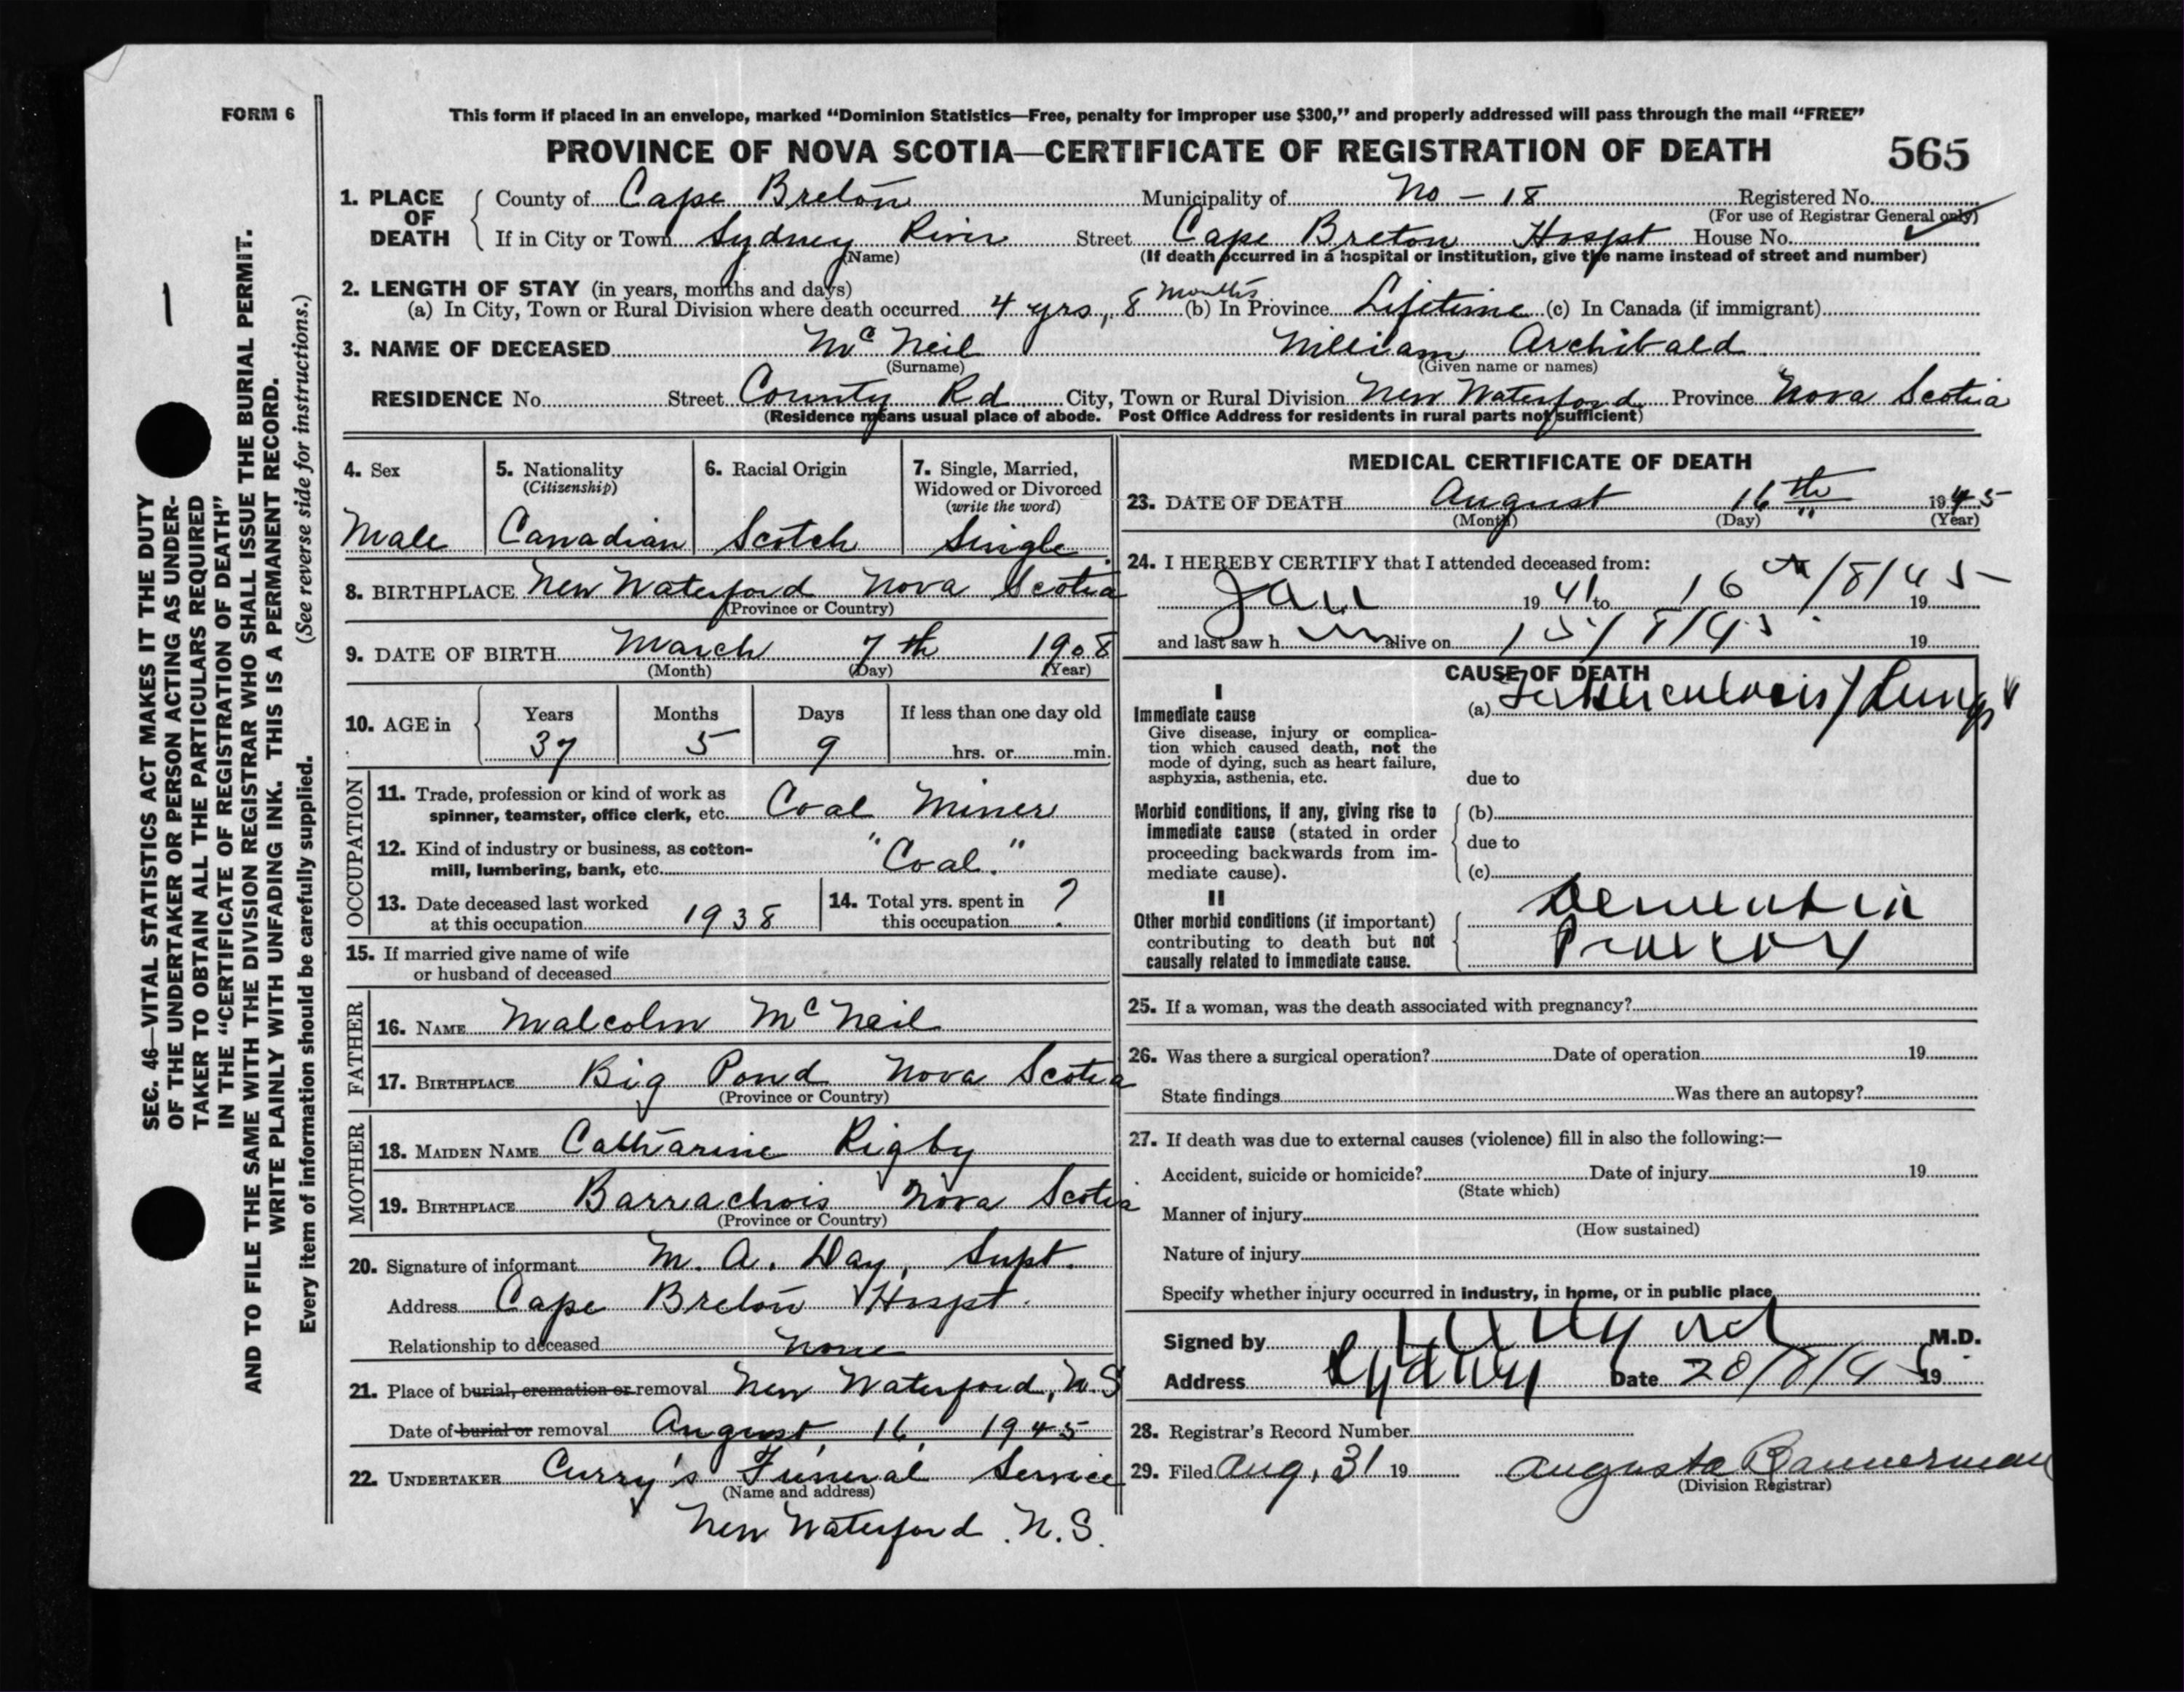 FORM 6
This form if placed in an envelope, marked “Dominion Statistics—Free, penalty for improper use $300,” and properly addressed will pass through the mail “FREE”
PROVINCE OF NOVA SCOTIA—CERTIFICATE OF REGISTRATION OF DEATH 565
1. PLACE OF DEATH County of Cape Breton Municipality of No - 18 Registered No.
(For use of Registrar General only)
If in City or Town Sydney River Street Cape Breton Hospt House No.
(Name) (If death occurred in a hospital or institution, give the name instead of street and number)
2. LENGTH OF STAY (in years, months and days)
(a) In City, Town or Rural Division where death occurred 4 yrs, 8 months (b) In Province Lifetime (c) In Canada (if immigrant)
3. NAME OF DECEASED McNeil William Archibald
(Surname) (Given name or names)
RESIDENCE No. Street County Rd City, Town or Rural Division New Waterford Province Nova Scotia
(Residence means usual place of abode. Post Office Address for residents in rural parts not sufficient)
4. Sex 5. Nationality (Citizenship) 6. Racial Origin 7. Single, Married, Widowed or Divorced (write the word)
Male Canadian Scotch Single
8. BIRTHPLACE New Waterford Nova Scotia
(Province or Country)
9. DATE OF BIRTH March 7th 1908
(Month) (Day) (Year)
10. AGE in Years Months Days If less than one day old
37 5 9 hrs. or min.
OCCUPATION
11. Trade, profession or kind of work as
spinner, teamster, office clerk, etc. Coal Miner
12. Kind of industry or business, as cotton-
mill, lumbering, bank, etc. "Coal."
13. Date deceased last worked
at this occupation 1938
14. Total yrs. spent in
this occupation ?
15. If married give name of wife
or husband of deceased
FATHER
16. NAME Malcolm McNeil
17. BIRTHPLACE Big Pond Nova Scotia
(Province or Country)
MOTHER
18. MAIDEN NAME Catharine Rigby
19. BIRTHPLACE Barrachois Nova Scotia
(Province or Country)
20. Signature of informant M. A. Day, Supt.
Address Cape Breton Hospt.
Relationship to deceased none
21. Place of burial, cremation or removal New Waterford, N.S
Date of burial or removal August, 16, 1945
22. UNDERTAKER Curry's Funeral Service
(Name and address)
New Waterford. N.S.
MEDICAL CERTIFICATE OF DEATH
23. DATE OF DEATH August 16th 1945
(Month) (Day) (Year)
24. I HEREBY CERTIFY that I attended deceased from:
Jan 19 41 to 16th/8/45 19
and last saw h im alive on 15/8/45. 19
CAUSE OF DEATH
I
Immediate cause
Give disease, injury or complica-
tion which caused death, not the
mode of dying, such as heart failure,
asphyxia, asthenia, etc.
(a) Tuberculosis / Lungs
due to
Morbid conditions, if any, giving rise to
immediate cause (stated in order
proceeding backwards from im-
mediate cause).
(b)
due to
(c)
II
Other morbid conditions (if important)
contributing to death but not
causally related to immediate cause.
Dementia
Praecox
25. If a woman, was the death associated with pregnancy?
26. Was there a surgical operation? Date of operation 19
State findings Was there an autopsy?
27. If death was due to external causes (violence) fill in also the following:—
Accident, suicide or homicide? Date of injury 19
(State which)
Manner of injury
(How sustained)
Nature of injury
Specify whether injury occurred in industry, in home, or in public place
Signed by M.D.
Address Sydney Date 20/8/45 19
28. Registrar's Record Number
29. Filed Aug, 31 19 Augusta Bannerman
(Division Registrar)
SEC. 46—VITAL STATISTICS ACT MAKES IT THE DUTY
OF THE UNDERTAKER OR PERSON ACTING AS UNDER-
TAKER TO OBTAIN ALL THE PARTICULARS REQUIRED
IN THE “CERTIFICATE OF REGISTRATION OF DEATH”
AND TO FILE THE SAME WITH THE DIVISION REGISTRAR WHO SHALL ISSUE THE BURIAL PERMIT.
WRITE PLAINLY WITH UNFADING INK. THIS IS A PERMANENT RECORD.
Every item of information should be carefully supplied. (See reverse side for instructions.)